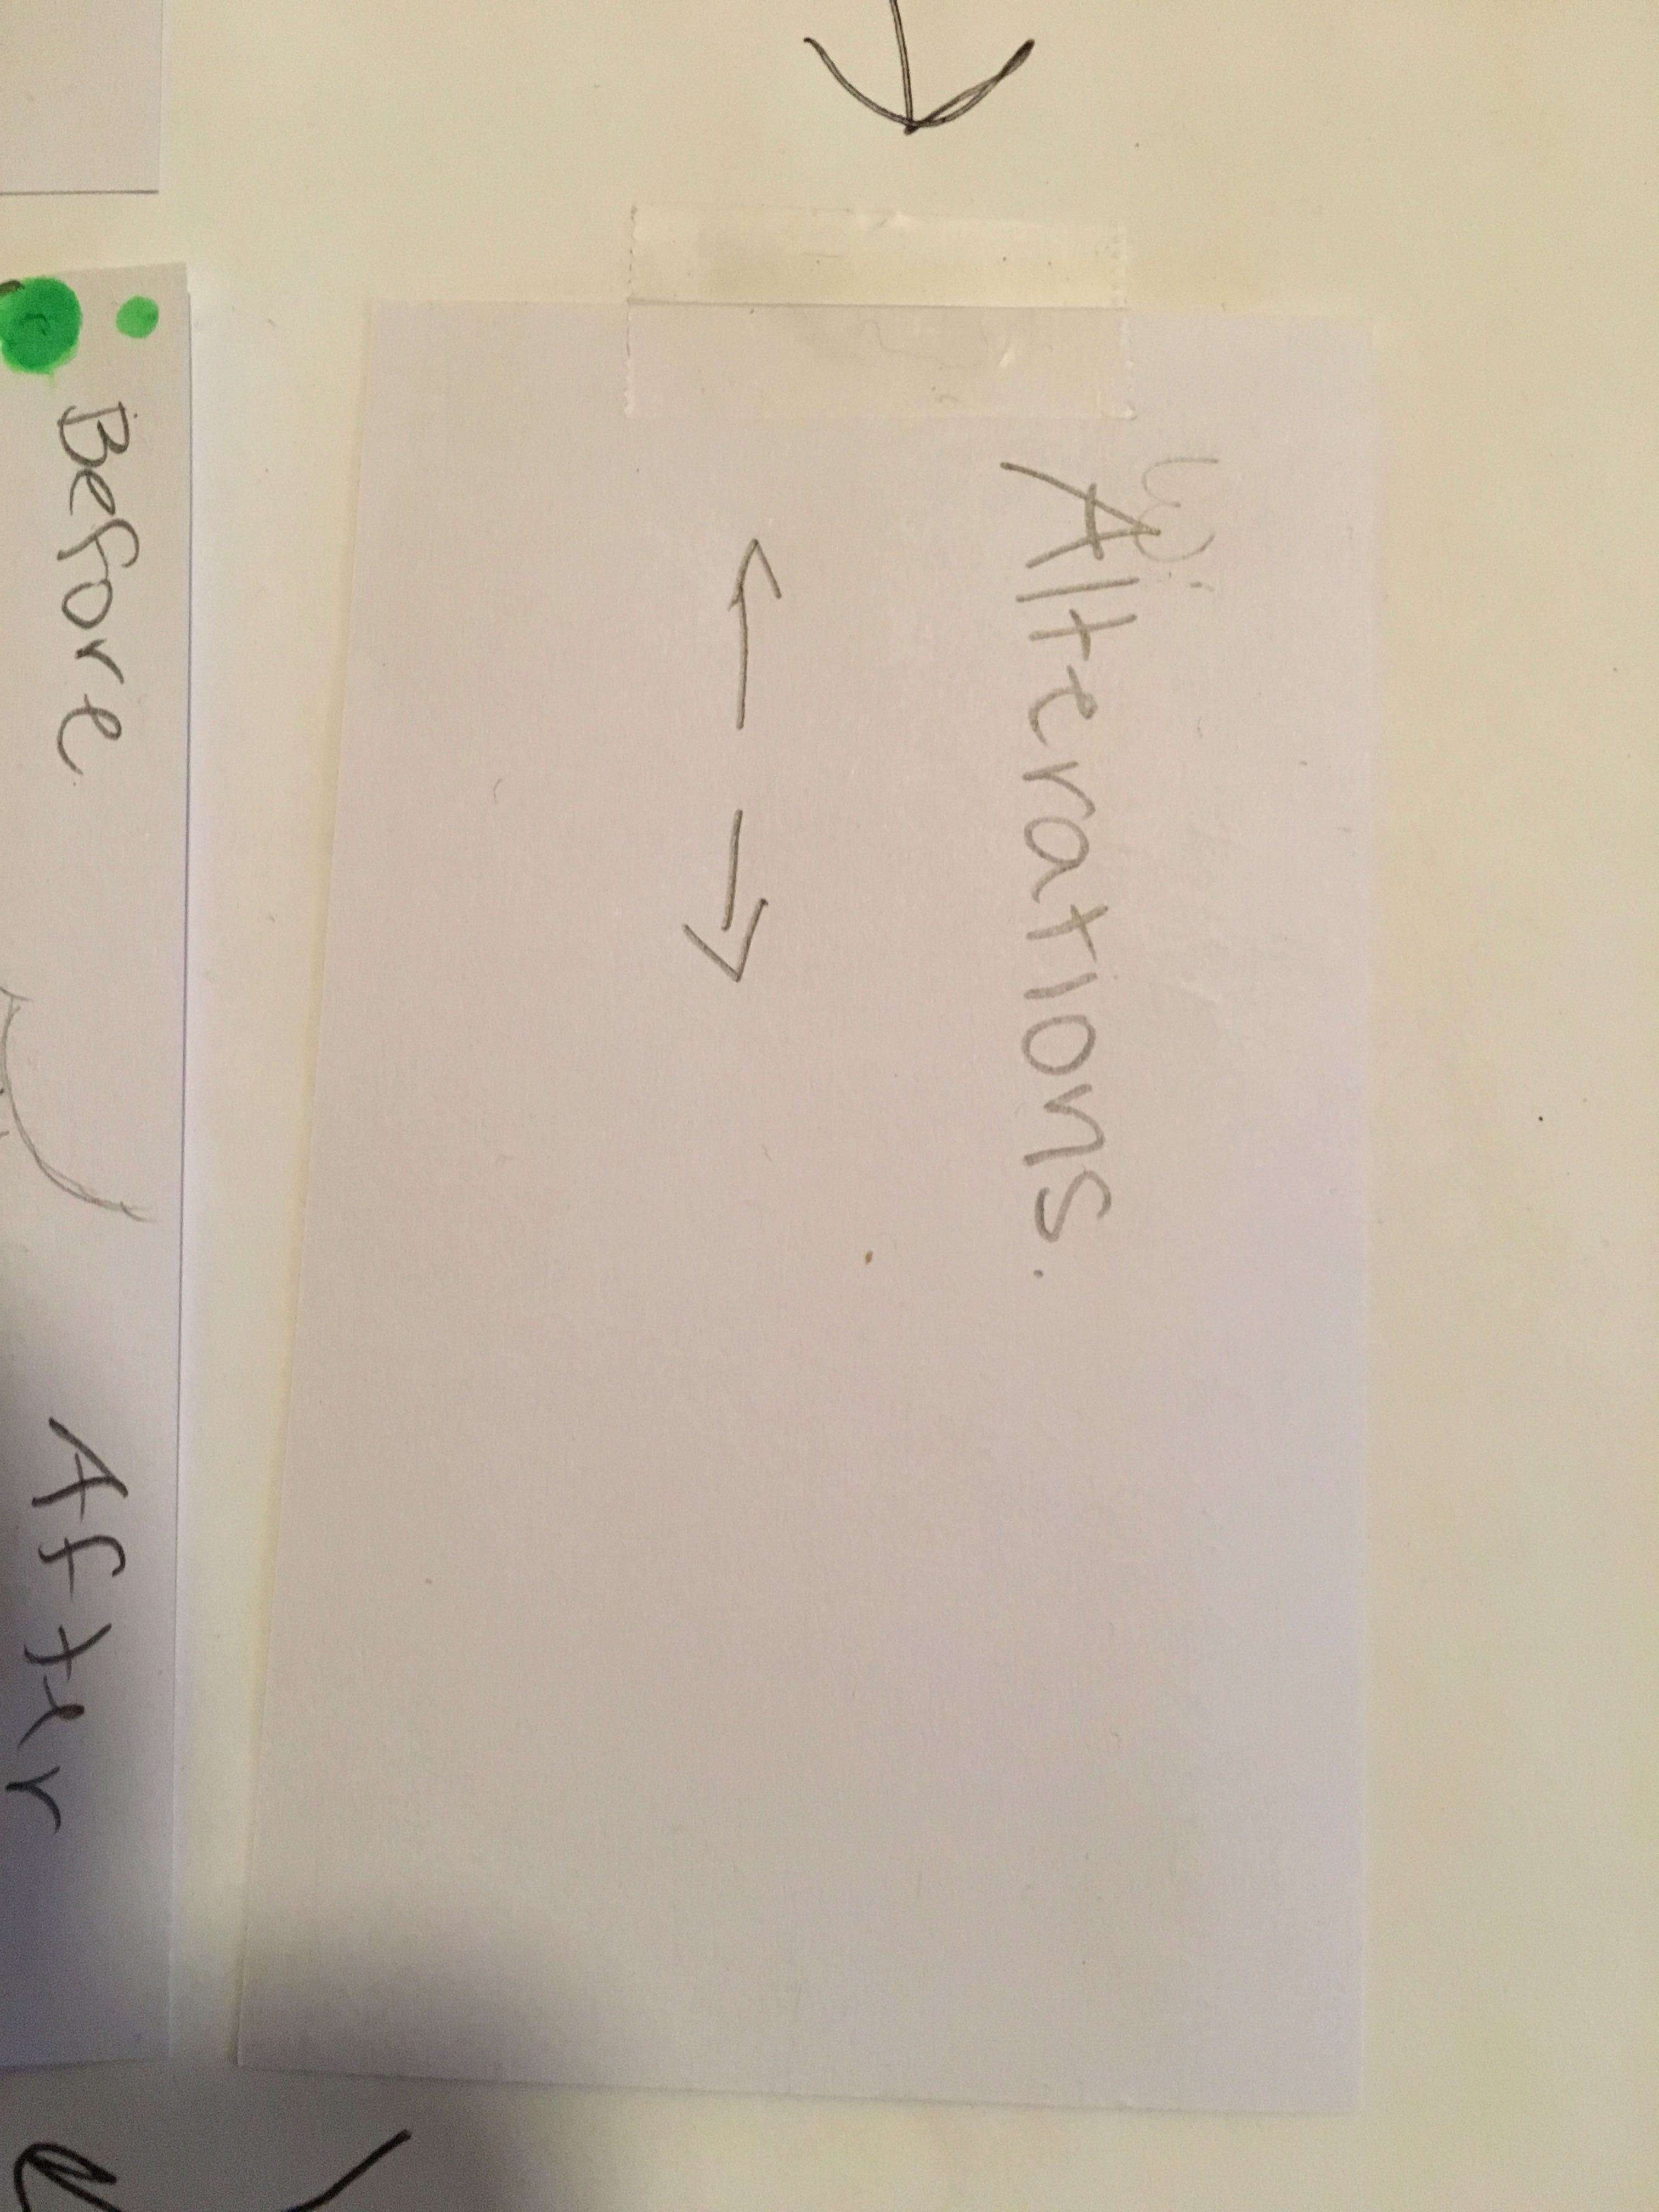 Alterations.
← →
Before
After